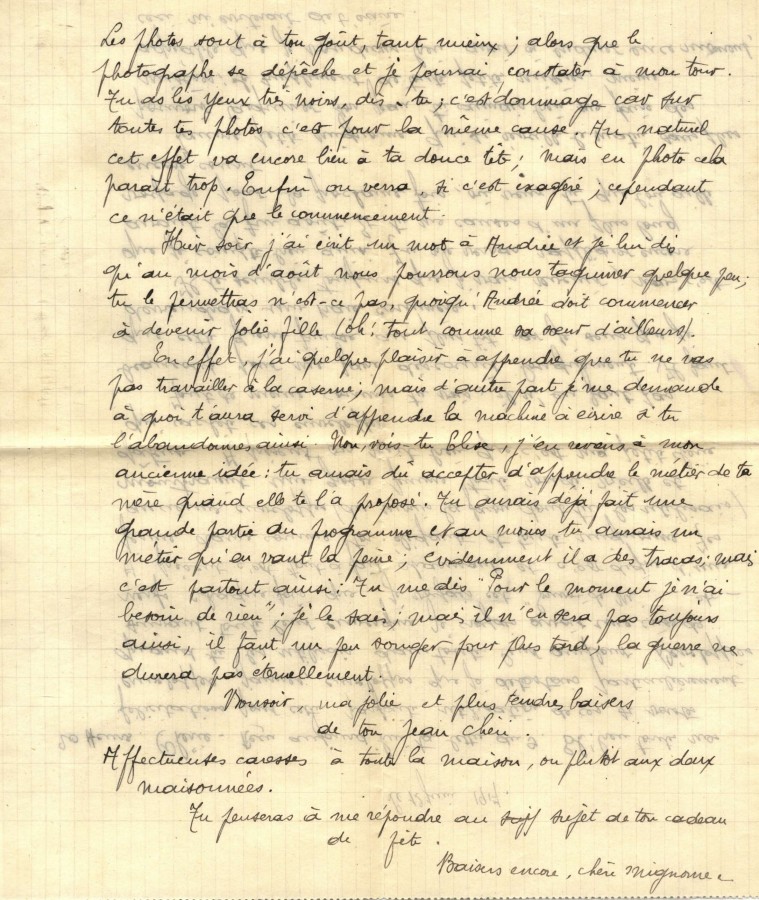 Les photos sont à ton goût, tant mieux ; alors que le
photographe se dépêche et je pourrai constater à mon tour.
Tu as les yeux très noirs, dis-tu ; c'est dommage car sur
toutes tes photos c'est pour la même cause. Au naturel
cet effet va encore bien à ta douce tête ; mais en photo cela
paraît trop. Enfin on verra, si c'est exagéré ; cependant
ce n'était que le commencement.
Hier soir j'ai écrit un mot à Andrée et je lui dis
qu'au mois d'août nous pourrons nous taquiner quelque peu ;
tu le permettras n'est-ce pas, quoiqu'Andrée doit commencer
à devenir jolie fille (oh ! tout comme sa sœur d'ailleurs).
En effet, j'ai quelque plaisir à apprendre que tu ne vas
pas travailler à la caserne ; mais d'autre part je me demande
à quoi t'aura servi d'apprendre la machine à écrire si tu
l'abandonnes ainsi. Non, vois-tu Elise, j'en reviens à mon
ancienne idée : tu aurais dû accepter d'apprendre le métier de ta
mère quand elle te l'a proposé. Tu aurais déjà fait une
grande partie du programme et au moins tu aurais un
métier qu'en vaut la peine ; évidemment il a des tracas ; mais
c'est partout ainsi ! Tu me dis "Pour le moment je n'ai
besoin de rien" ; je le sais ; mais il n'en sera pas toujours
ainsi, il faut un peu songer pour plus tard, la guerre ne
durera pas éternellement.
Bonsoir, ma jolie et plus tendres baisers
de ton Jean chéri.
Affectueuses caresses à toute la maison, ou plutôt aux deux
maisonnées.
Tu penseras à me répondre au sujet de ton cadeau
de fête.
Baisers encore, chère mignonne